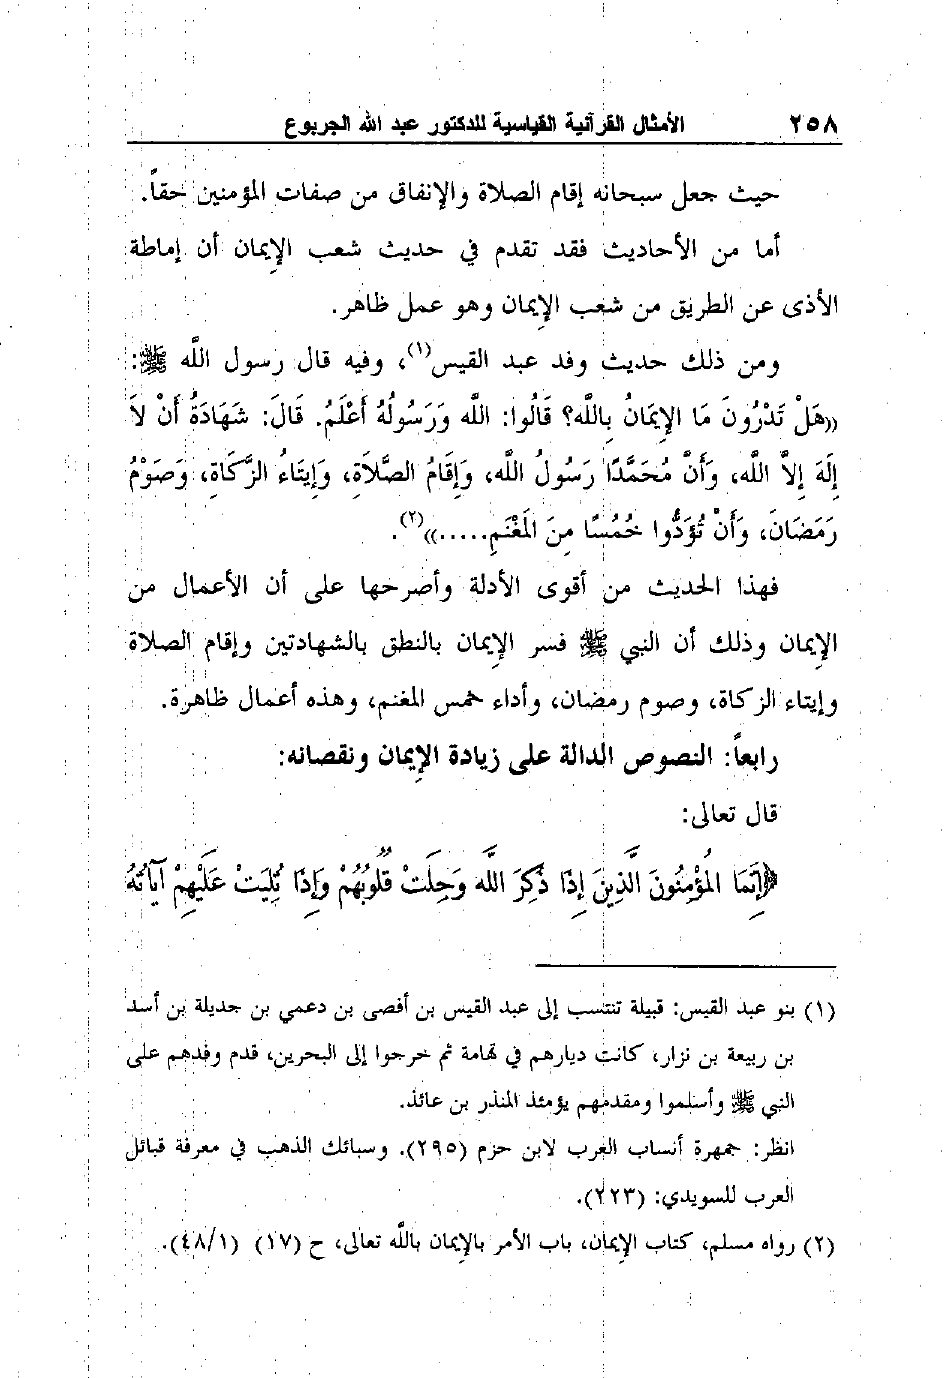 ٢٥٨ الأمثال القرآنية القياسية للدكتور عبد الله الجربوع
حيث جعل سبحانه إقام الصلاة والإنفاق من صفات المؤمنين حقاً.
أما من الأحاديث فقد تقدم في حديث شعب الإيمان أن إماطة
الأذى عن الطريق من شعب الإيمان وهو عمل ظاهر.
ومن ذلك حديث وفد عبد القيس(١)، وفيه قال رسول الله ﷺ:
((هَلْ تَدْرُونَ مَا الإِيمَانُ بِالله؟ قَالُوا: الله وَرَسُولُهُ أَعْلَمُ. قَالَ: شَهَادَةُ أَنْ لاَ
إِلَهَ إِلاَّ الله، وَأَنَّ مُحَمَّدًا رَسُولُ الله، وَإِقَامُ الصَّلاَةِ، وَإِيتَاءُ الزَّكَاةِ، وَصَوْمُ
رَمَضَانَ، وَأَنْ تُؤَدُّوا خُمُسًا مِنَ الْمَغْنَمِ.....))(٢).
فهذا الحديث من أقوى الأدلة وأصرحها على أن الأعمال من
الإيمان وذلك أن النبي ﷺ فسر الإيمان بالنطق بالشهادتين وإقام الصلاة
وإيتاء الزكاة، وصوم رمضان، وأداء خمس المغنم، وهذه أعمال ظاهرة.
رابعاً: النصوص الدالة على زيادة الإيمان ونقصانه:
قال تعالى:
﴿إِنَّمَا الْمُؤْمِنُونَ الَّذِينَ إِذَا ذُكِرَ اللَّه وَجِلَتْ قُلُوبُهُمْ وَإِذَا تُلِيَتْ عَلَيْهِمْ آيَاتُهُ
(١) بنو عبد القيس: قبيلة تنتسب إلى عبد القيس بن أفصى بن دعمي بن جديلة بن أسد
بن ربيعة بن نزار، كانت ديارهم في تهامة ثم خرجوا إلى البحرين، قدم وفدهم على
النبي ﷺ وأسلموا ومقدمهم يؤمئذ المنذر بن عائذ.
انظر: جمهرة أنساب العرب لابن حزم (٢٩٥). وسبائك الذهب في معرفة قبائل
العرب للسويدي: (٢٢٣).
(٢) رواه مسلم، كتاب الإيمان، باب الأمر بالإيمان بالله تعالى، ح (١٧) (٤٨/١).